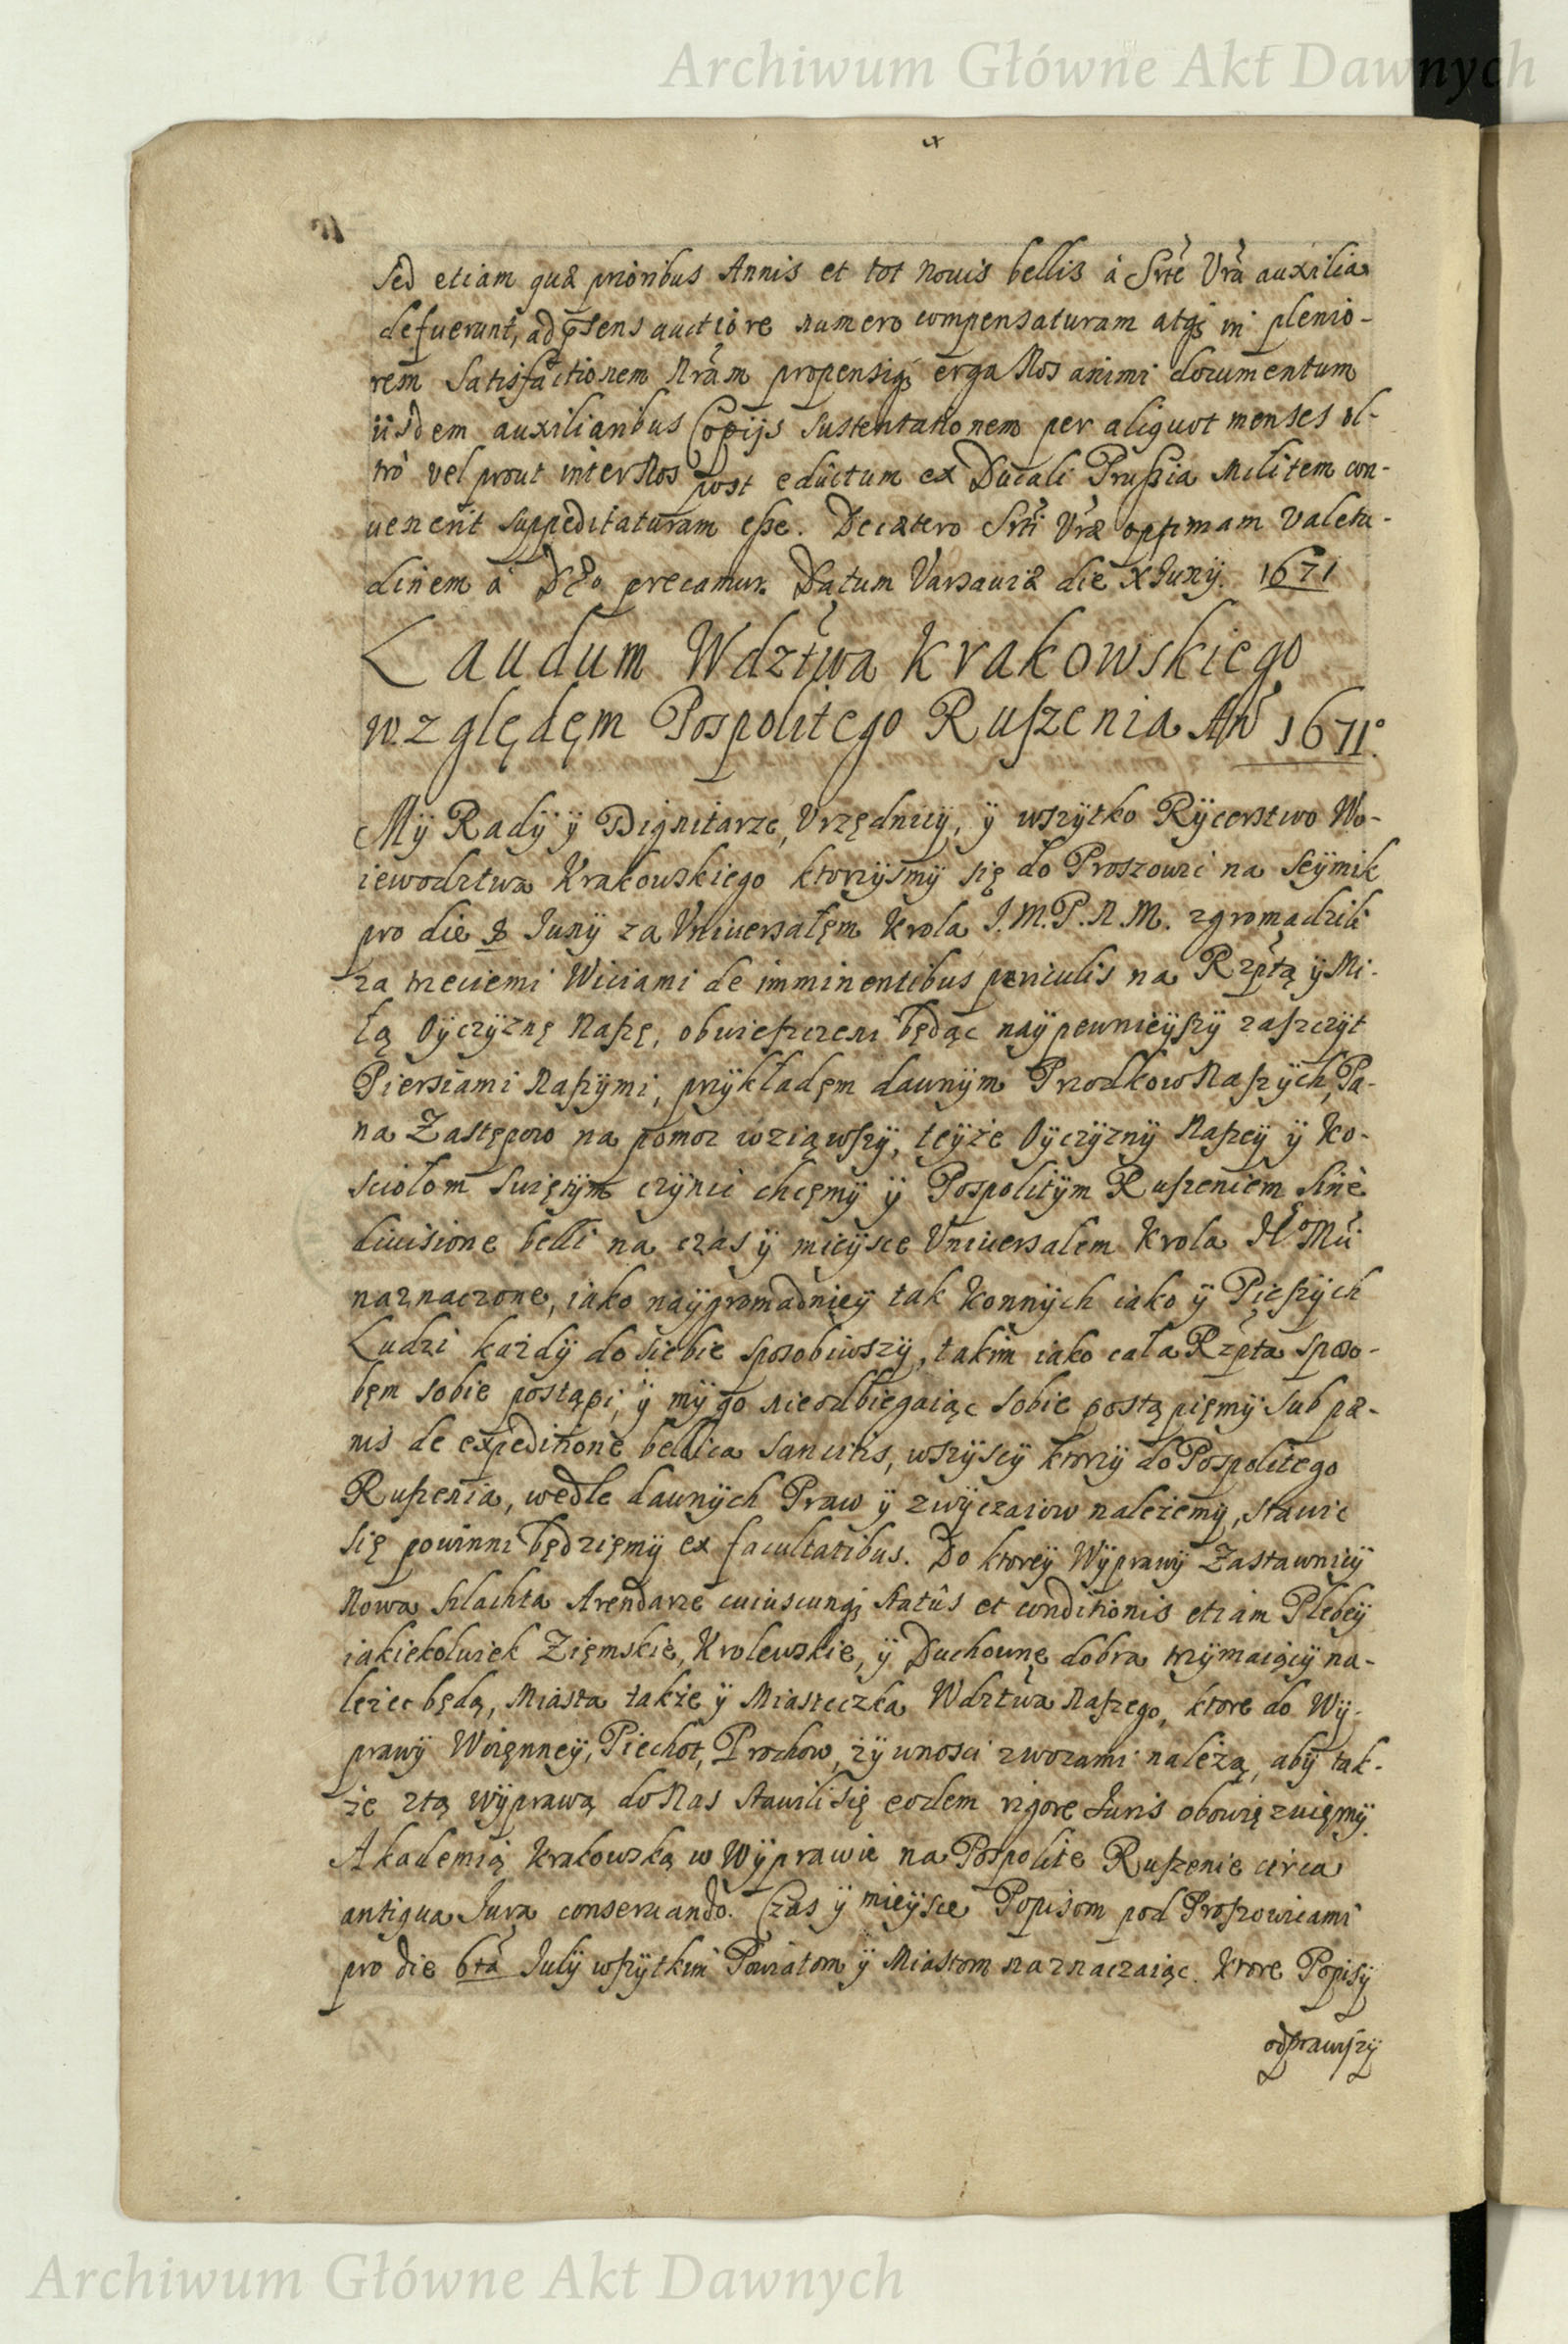 Archiwum Główne Akt Dawnych
sed etiam quæ prioribus Annis et tot novis bellis à Srte Vra auxilia
defuerunt, ad psens auctiore numero compensaturam atq in plenio-
rem Satisfactionem Nram propensiq erga Nos animi documentum
iisdem auxiliaribus Copijs sustentationem per aliquot menses ul-
trò vel prout inter Nos post eductum ex Ducali Prussia Militem con-
venerit suppeditaturam esse. Decætero Srti Vræ optimam valetu-
dinem à Deo precamur. Datum Varsaviæ die X Junÿ. 1671
Laudum Wdztwa Krakowskiego
względęm Pospolitego Ruszenia Ao 1671°.
Mÿ Radÿ ÿ Dignitarze, Vrzędnicÿ, ÿ wszÿtko Rÿcerstwo Wo-
iewodztwa Krakowskiego ktorzÿsmÿ się do Proszowic na Seÿmik
pro die 8 Junÿ za Vniuersałęm Krola J.M.P.N.M. zgromadzili
za trzeciemi Wiciami de imminentibus periculis na Rzptą ÿ Mi-
łą Oÿczÿznę Naszę, obwieszczeni będąc naÿpewnieÿszÿ zaszczÿt
Piersiami Naszÿmi, przÿkładęm dawnÿm Przodkow Naszÿch, Pa-
na Zastępow na pomoc wziąwszÿ, teÿże Oÿczÿznÿ Naszeÿ ÿ Ko-
sciołom Swiętÿm czÿnic chcęmÿ ÿ Pospolitÿm Ruszeniem sine
diuisione belli na czas ÿ mieÿsce Vniuersalem Krola Je° Mci
naznaczone, iako naÿgromadnieÿ tak Konnÿch iako ÿ Pieszÿch
Ludzi każdÿ do siebie sposobiwszÿ, takim iako cała Rzpta sposo-
bęm sobie postąpi, ÿ mÿ go nieodbiegaiąc sobie postąpięmÿ sub pæ-
nis de expeditione bellica sancitis, wszÿscÿ ktorzÿ do Pospolitego
Ruszenia, wedle dawnÿch Praw ÿ zwÿczaiow należemÿ, stawic
się powinni będzięmÿ ex facultatibus. Do ktoreÿ Wÿprawÿ Zastawnicÿ
Nowa Szlachta Arendarze cuiuscunq statûs et conditionis etiam Plebeÿ
iakiekolwiek Zięmskie, Krolewskie, ÿ Duchownę dobra trzÿmaiącÿ na-
leżec będą, Miasta także ÿ Miasteczka Wdztwa Naszego, ktore do Wÿ-
prawÿ Woięnneÿ, Piechot, Prochow, żÿwnosci zwozami należą, abÿ tak-
że ztą wÿprawą do Nas stawili się eodem rigore Juris obowięzuięmÿ.
Akademią Krakowską w Wÿprawie na Pospolite Ruszenie circa
antiqua Jura conseruando. Czas ÿ mieÿsce Popisom pod Proszowicami
pro die 6ta Julÿ wszÿtkim Powiatom ÿ Miastom naznaczaiąc. Ktore Popisÿ
odprawiszÿ
Archiwum Główne Akt Dawnych